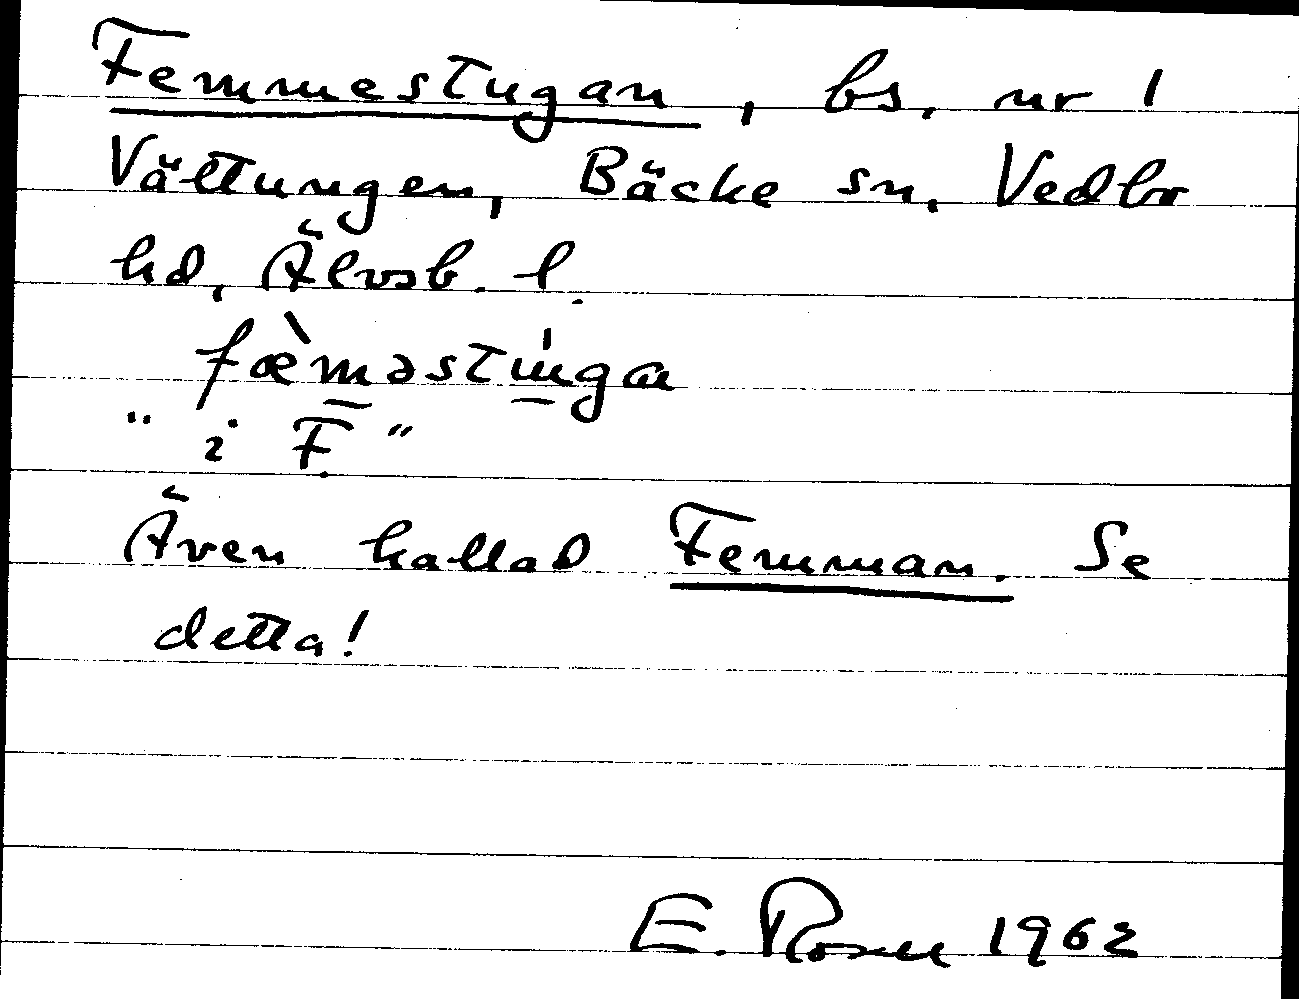 Femmestugan, bs, nr 1
Vältungen, Bäcke sn, Vedbo
hd, Älvsb. l.
fæ̀m̲əstu̲̍ga
"i F."
Även kallad Femman. Se
detta!
E. Rosen 1962